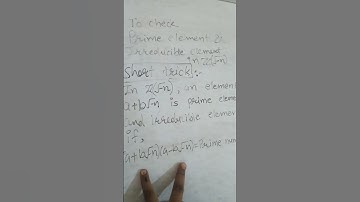 To check
Prime element &
Irreducible element
in Z[√-n]
Short trick:-
In Z[√-n], an elemen
a+b√-n is prime eleme
and irreducible element
iff
(a+b√-n)(a-b√-n)=Prime num